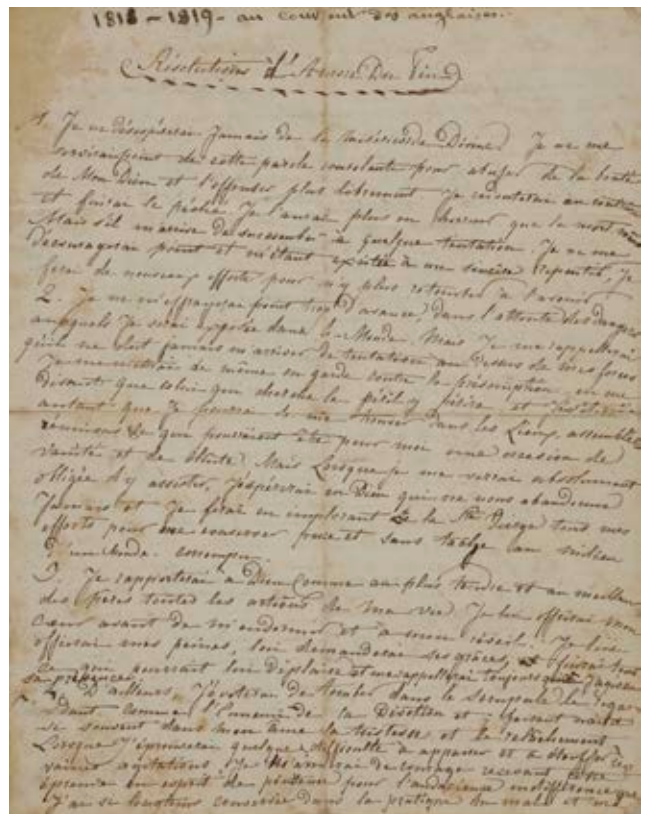 1818 - 1819 - au couvent des anglaises.
Résolutions d'Aurore Du Pin
1. Je ne désespérerai Jamais de la miséricorde Divine. Je ne me
servirai point de cette parole consolante pour abuser de la bonté
de Mon Dieu et l'offenser plus librement. Je
et fuirai le péché. Je l'aurai plus en horreur que la mort
Mais s'il m'arrive de succomber à quelque tentation. Je ne me
Découragerai point et m'étant excitée à un sincère repentir, Je
ferai de nouveaux efforts pour n'y plus retomber à l'avenir
2. Je ne m'effrayerai point trop D'avance, dans l'attente des dangers
auxquels Je serai exposée dans le Monde. Mais Je me rappellerai
qu'il ne doit jamais m'arriver de tentation au dessus de mes forces
Je me mettrai de même en garde contre la présomption en me
Disant que celui qui cherche le péril y périra et J'éviterai
autant que Je pourrai de me trouver dans les Lieux, assemblées
réunions que pourraient être pour moi une occasion de
vanité et de Mais Lorsque je me verrai absolument
obligée d'y assister, J'espérerai en Dieu qui ne nous abandonne
Jamais et Je ferai en implorant la Ste Vierge tous mes
efforts pour me conserver pure et sans tache au milieu
D'un Monde corrompu.
3. Je rapporterai à Dieu comme au plus tendre et au meilleur
des pères toutes les actions de ma vie. Je lui offrirai mon
cœur avant de m'endormir et à mon réveil. Je lui
offrirai mes peines, lui demanderai ses grâces, fuirai tout
ce qui pourrait lui déplaire et me rappellerai toujours
sa présence.
D'ailleurs, J'éviterai de tomber dans le scrupule le regar-
dant comme l'Ennemi de la Dévotion et
souvent dans mon âme la tristesse et le relâchement
Lorsque J'éprouverai quelque difficulté à appaiser et à étouffer ces
vaines agitations Je m'armerai de courage recevant cette
épreuve en esprit de pénitence pour l'audacieuse indifférence que
J'ai si longtems conservée dans la pratique du mal et